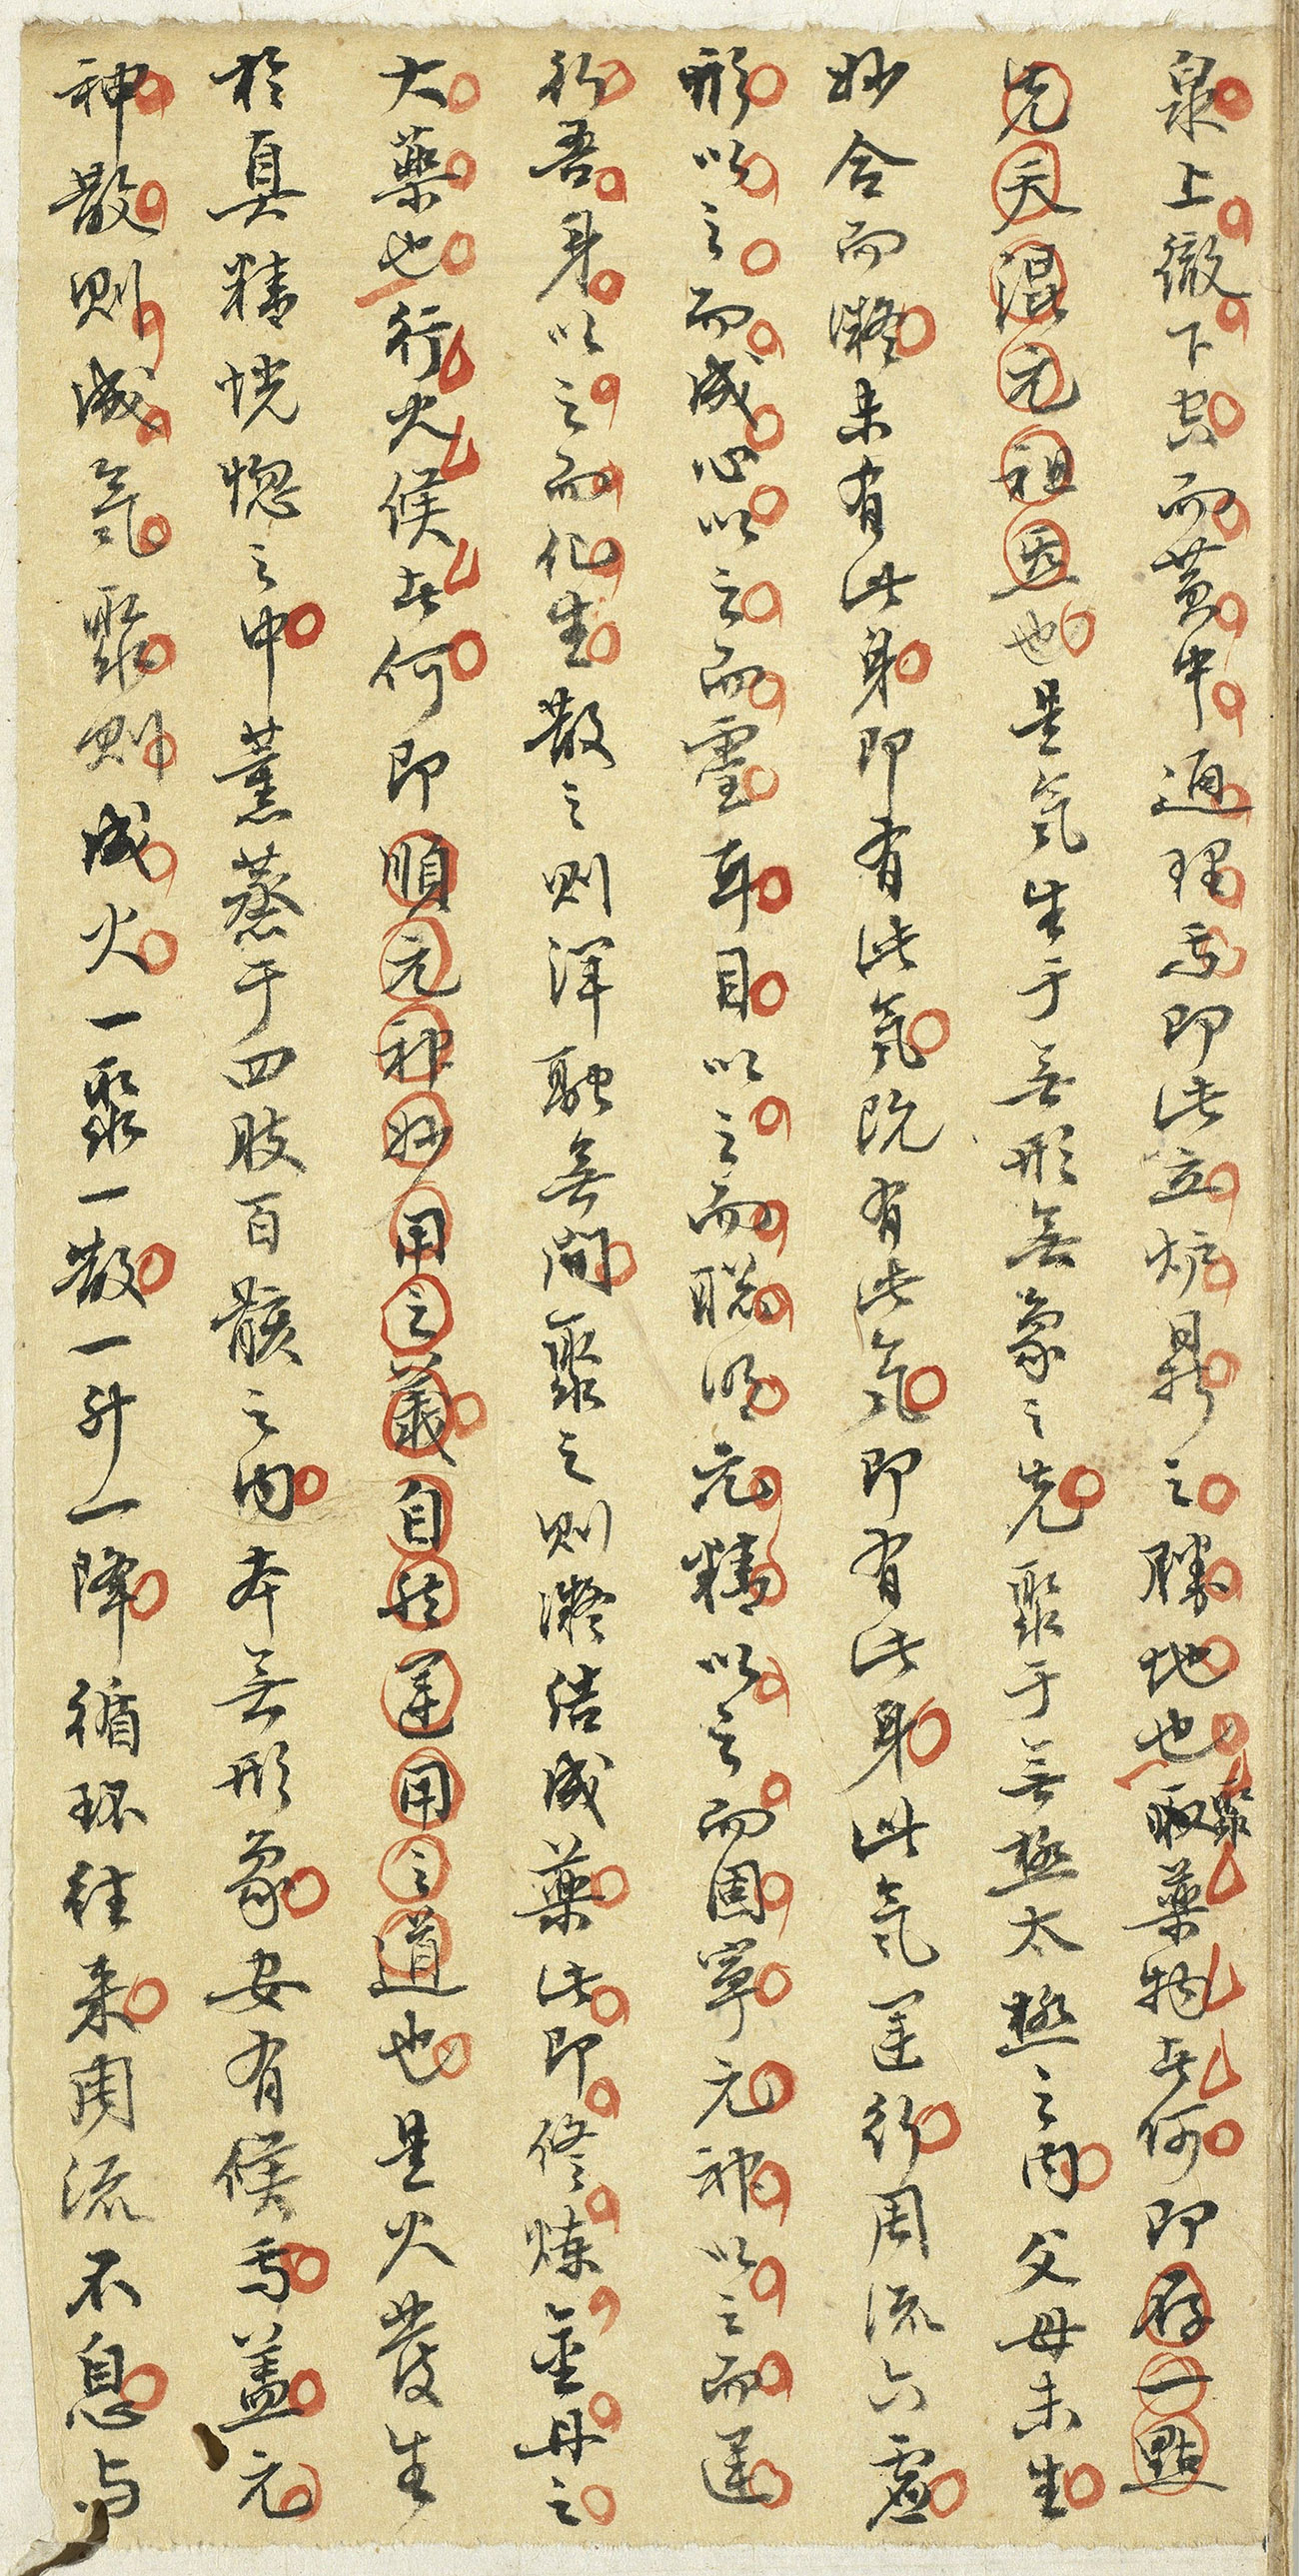 泉上徹下空而黄中通理焉即此立炉鼎之勝地也聚藥物者何即存一點
先天混元祖炁也是氣生于無形無象之先聚于無極太極之内父母未生
妙合而凝未有此身即有此氣既有此氣即有此身此氣運行周流六虛
形以之而成心以之而靈耳目以之而聰明元精以之而固寧元神以之而運
行吾身以之而化生散之則渾融無間聚之則凝结成藥此即修煉金丹之
大藥也行火候者何即順元神妙用之義自然運用之道也是火發生
於真精恍惚之中薰蒸于四肢百骸之内本無形象安有候焉盖元
神散則成氣聚則成火一聚一散一升一降循环往来周流不息与